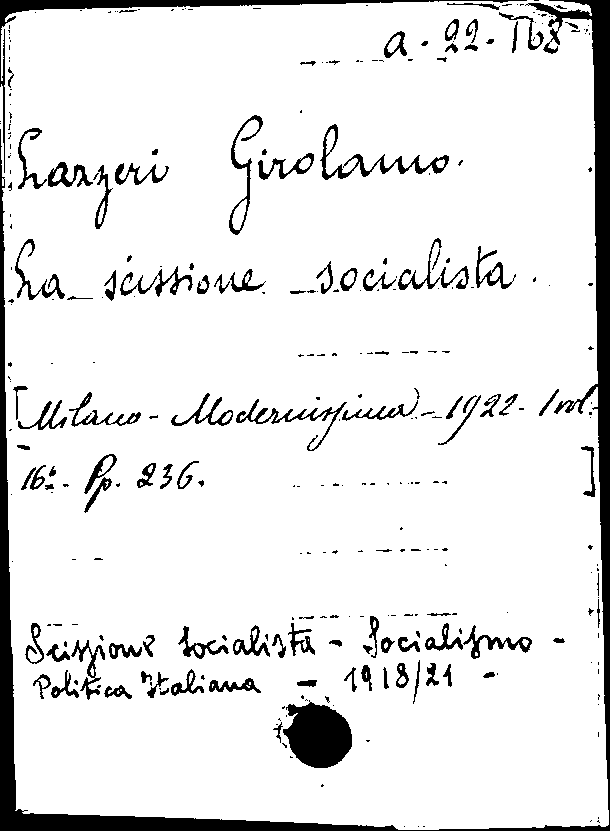 a. 22. 168
Lazzeri Girolamo.
La scissione socialista.
[Milano - Modernissima - 1922 - 1 vol.
16º - Pp. 236. ]
Scissione socialista - Socialismo -
Politica Italiana - 1918/21 -